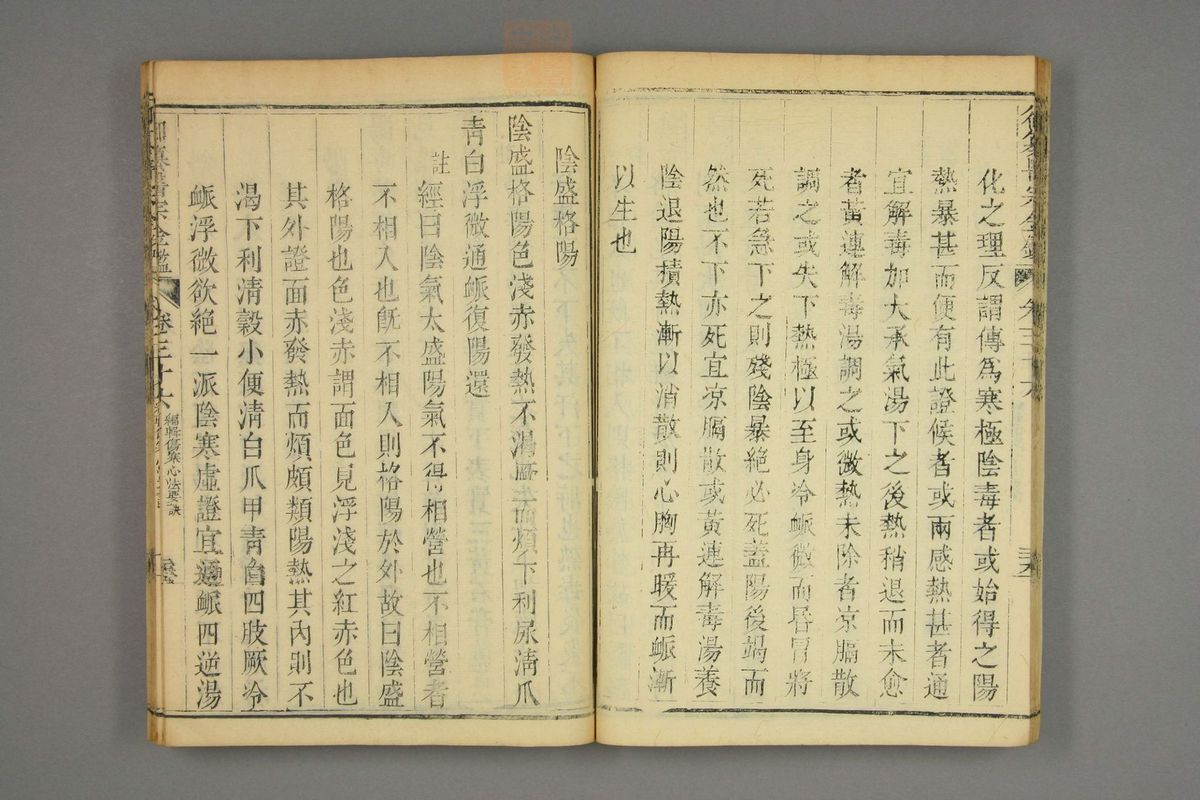 化之理反謂傳爲寒極陰毒者或始得之陽
熱暴甚而便有此證候者或兩感熱甚者通
宜解毒加大承氣湯下之後熱稍退而未愈
者黃連解毒湯調之或微熱未除者凉膈散
調之或失下熱極以至身冷脈微而昏冒將
死若急下之則殘陰暴絕必死蓋陽後竭而
然也不下亦死宜凉膈散或黃連解毒湯養
陰退陽積熱漸以消散則心胸再暖而脈漸
以生也
陰盛格陽
陰盛格陽色淺赤發熱不渴厥而煩下利尿淸爪
靑白浮微通脈復陽還
註
經曰陰氣太盛陽氣不得相營也不相營者
不相入也旣不相入則格陽於外故曰陰盛
格陽也色淺赤謂面色見浮淺之紅赤色也
其外證面赤發熱而煩頗類陽熱其內則不
渴下利淸穀小便淸白爪甲靑白四肢厥冷
脈浮微欲絕一派陰寒虛證宜通脈四逆湯
御纂醫宗金鑑
卷三十八
編輯傷寒心法要訣